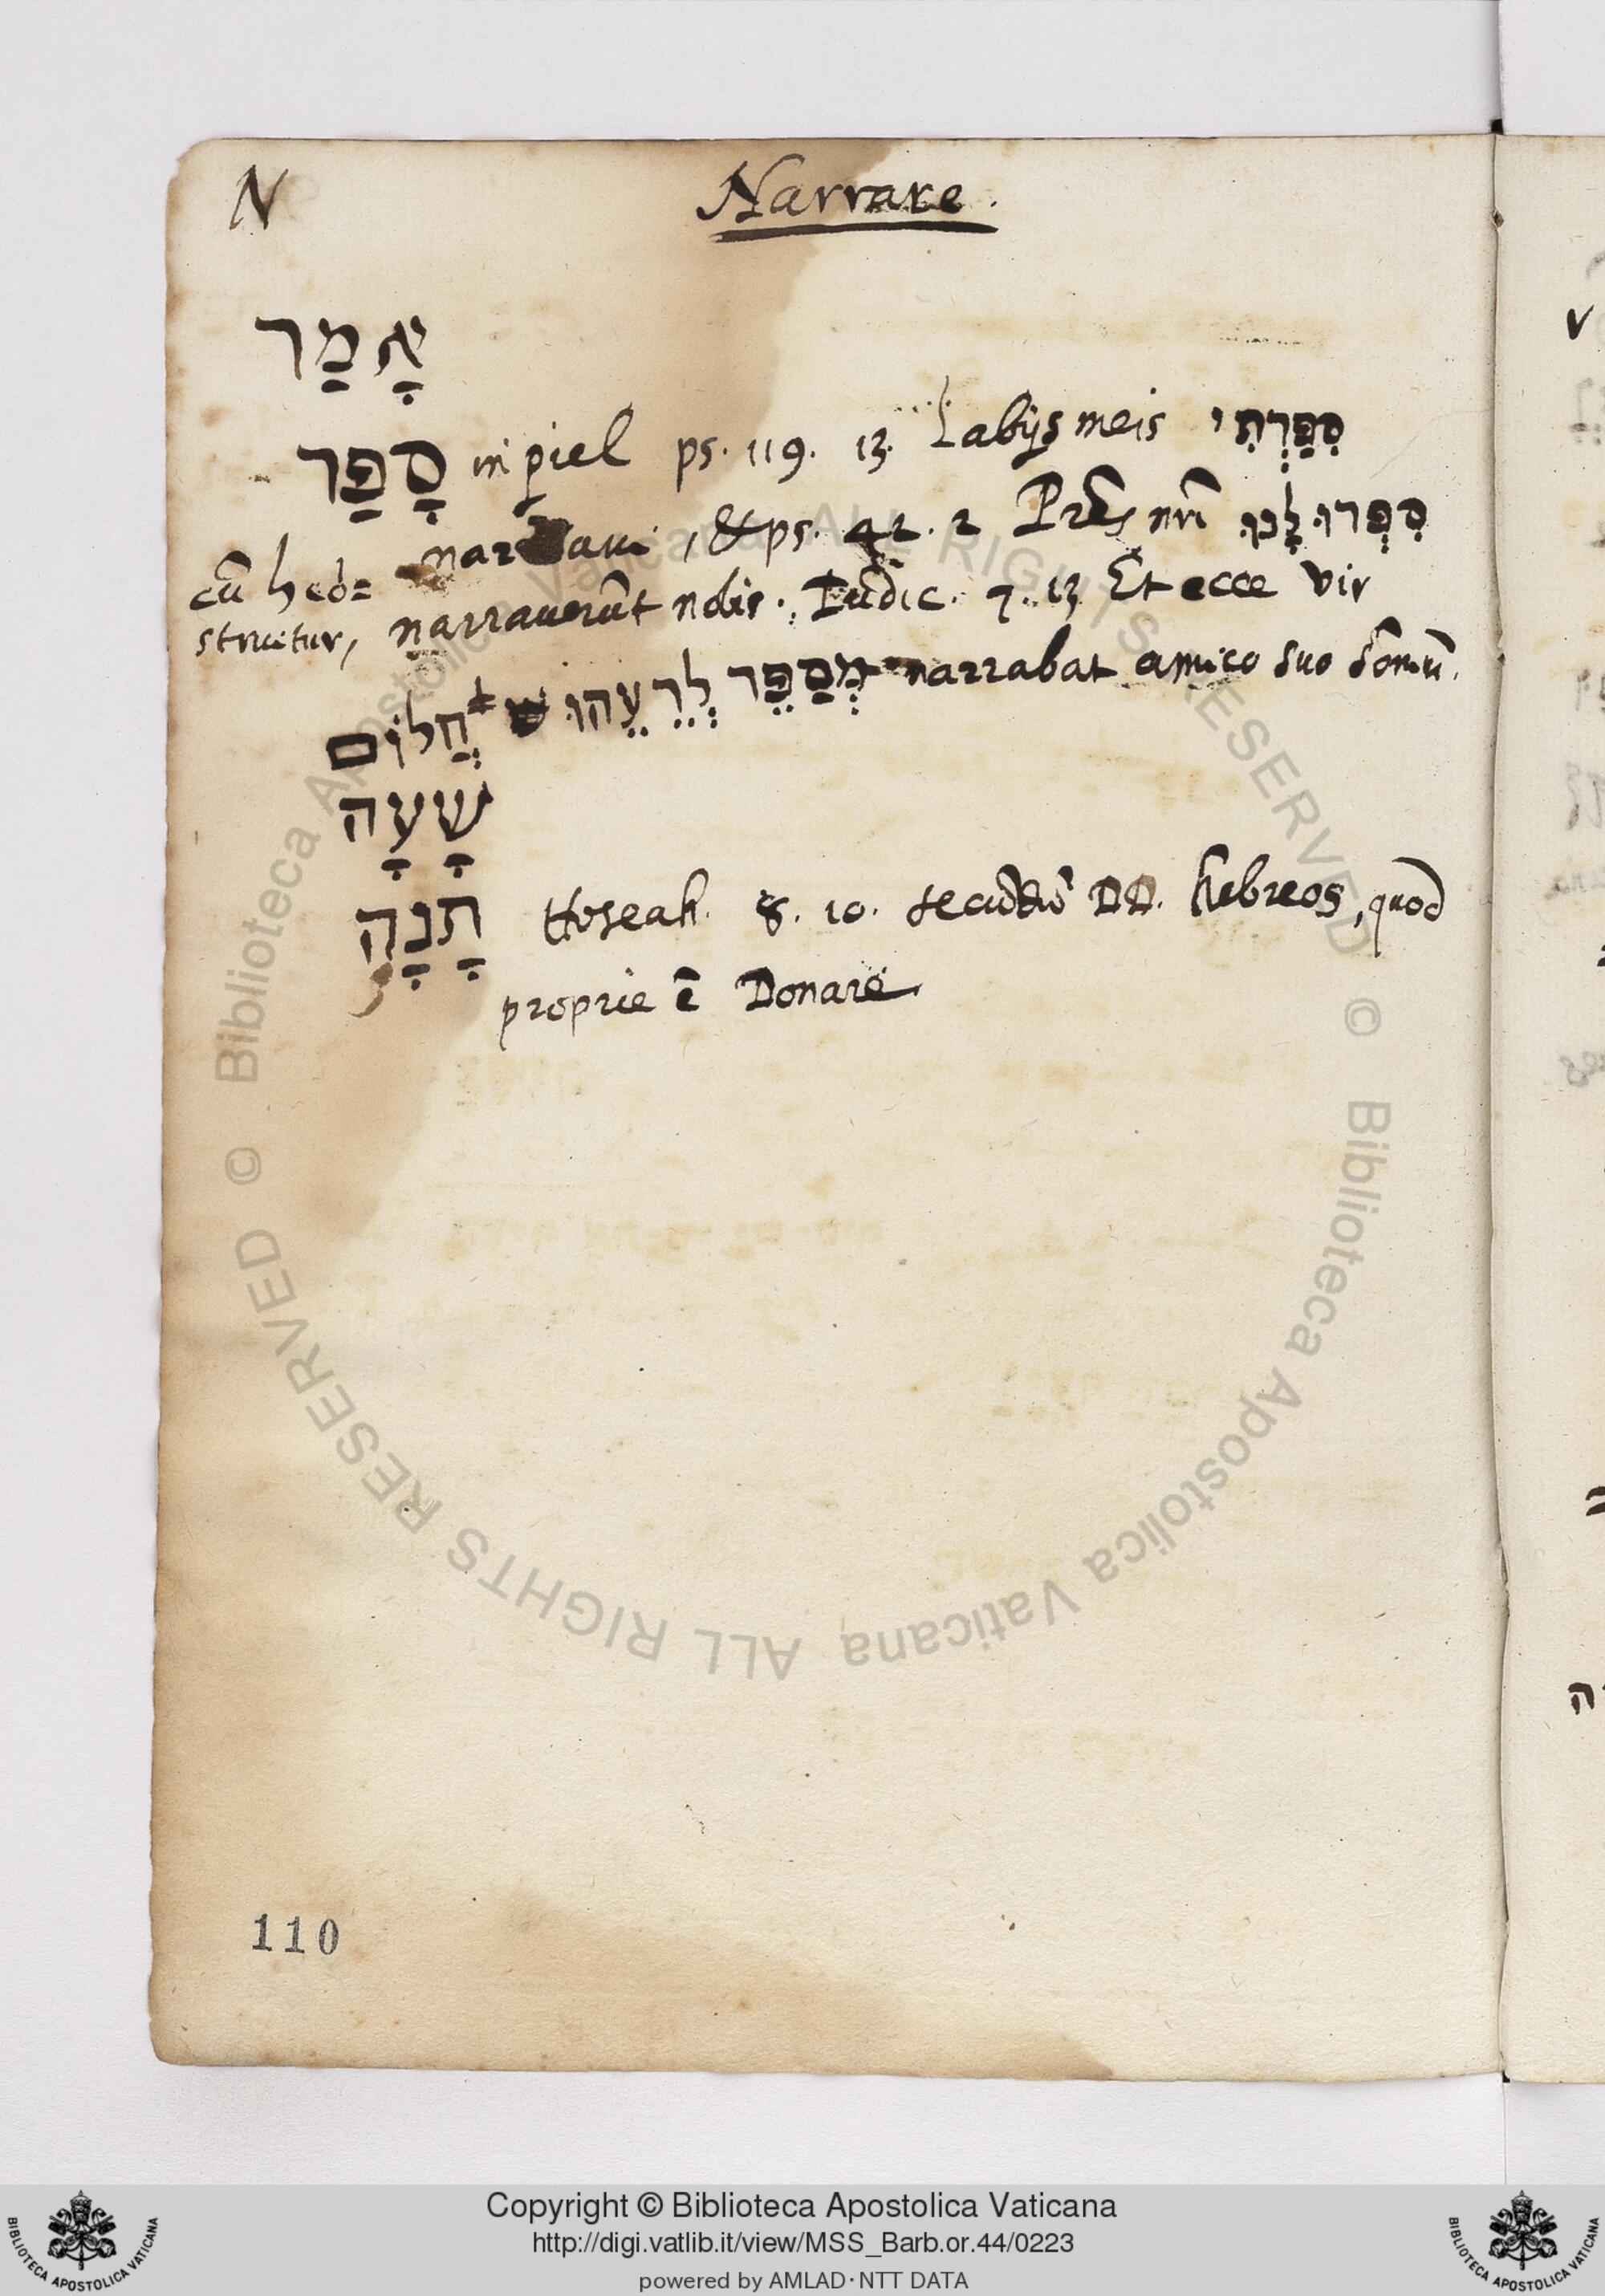 N
Narrare.
אָמַר
סָפַר in piel ps. 119. 13. Labijs meis סִפַּרְתִּי
narraui, & ps. 42. 2 Prẽs nrĩ סִפְּרוּ לָנוּ
cũ h cõ=
struitur, narrauerũt nobis. Iudic. 7. 13 Et ecce vir
מְסַפֵּר לְרֵעֵהוּ narrabat amico suo somũ.
חֲלוֹם
שָׁעָה
תָנָה Hoseah. 8. 10. secundũ DD. hebreos, quod
proprie ẽ Donare
110
© Biblioteca Apostolica Vaticana ALL RIGHTS RESERVED © Biblioteca Apostolica Vaticana ALL RIGHTS RESERVED
Copyright © Biblioteca Apostolica Vaticana
http://digi.vatlib.it/view/MSS_Barb.or.44/0223
powered by AMLAD·NTT DATA
BIBLIOTECA APOSTOLICA VATICANA
BIBLIOTECA APOSTOLICA VATICANA